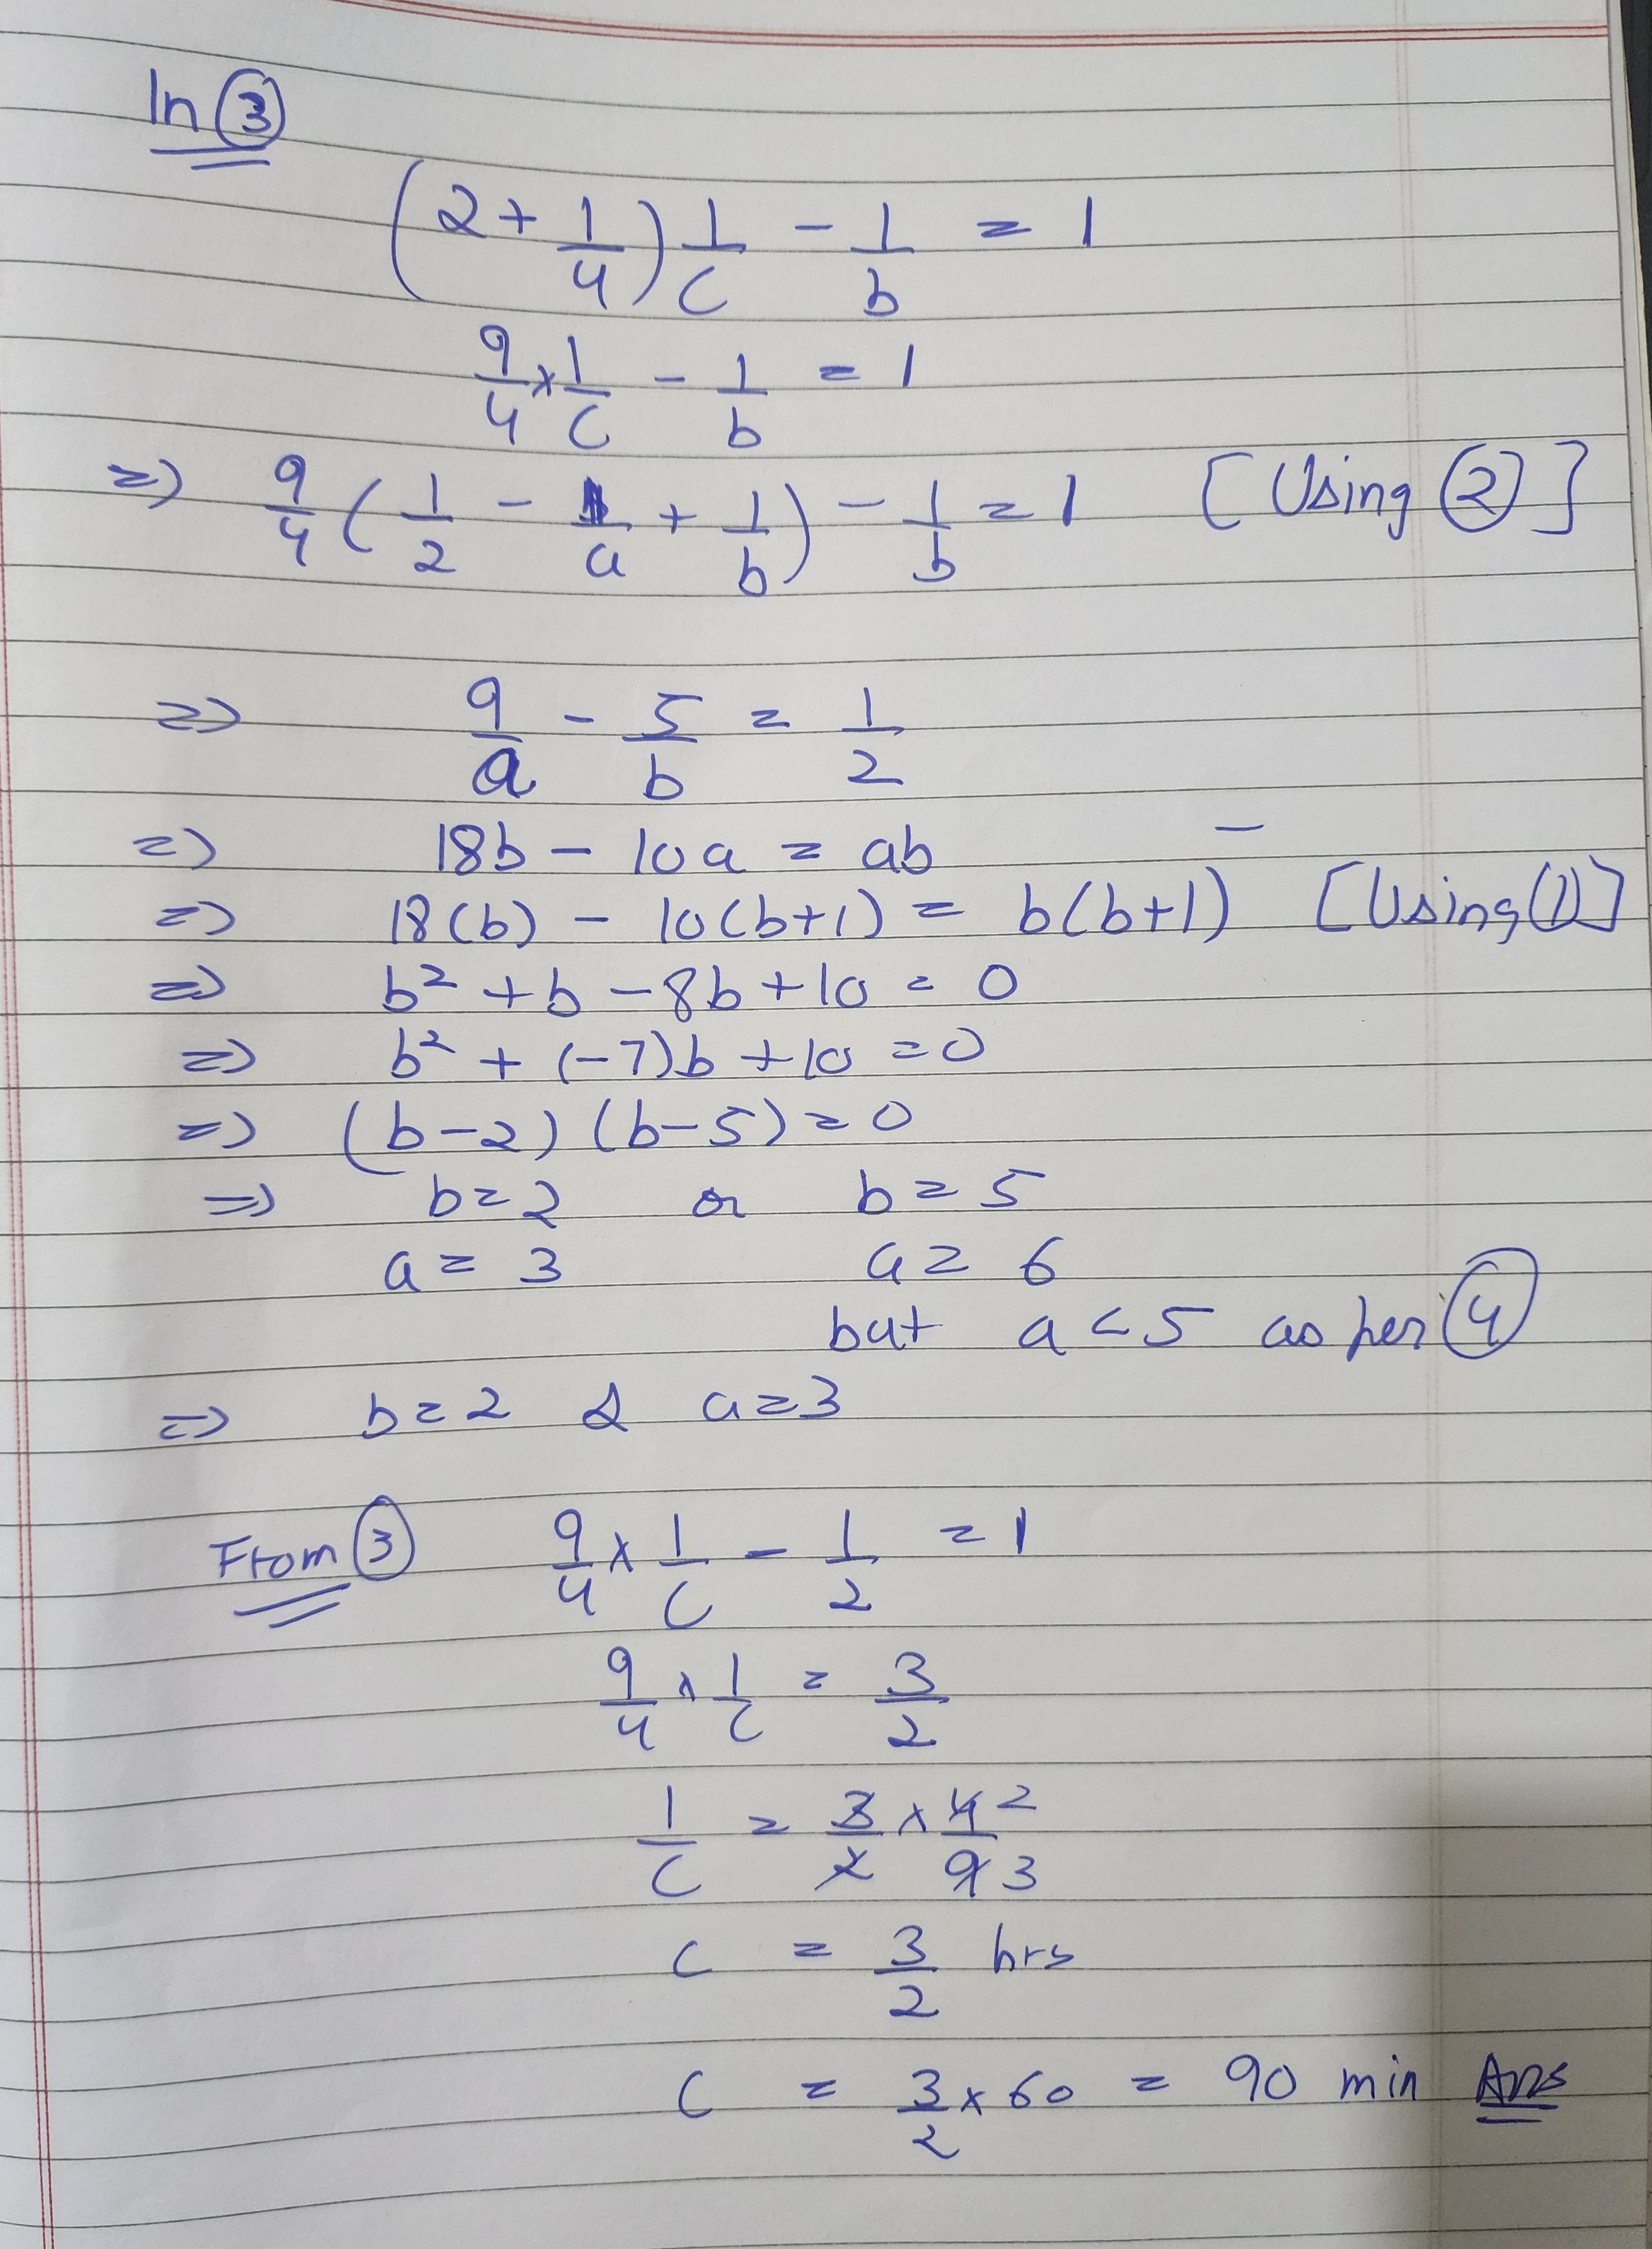 In ③
(2 + 1/4) 1/c - 1/b = 1
9/4 × 1/c - 1/b = 1
=> 9/4 (1/2 - 1/a + 1/b) - 1/b = 1 [Using ②]
=> 9/a - 5/b = 1/2
=> 18b - 10a = ab
=> 18(b) - 10(b+1) = b(b+1) [Using ①]
=> b² + b - 8b + 10 = 0
=> b² + (-7)b + 10 = 0
=> (b-2) (b-5) = 0
=> b = 2 or b = 5
a = 3 a = 6
but a < 5 as per ④
=> b = 2 & a = 3
From ③ 9/4 × 1/c - 1/2 = 1
9/4 × 1/c = 3/2
1/c = 3/2 × 4/9 2 3
c = 3/2 hrs
c = 3/2 × 60 = 90 min Ans